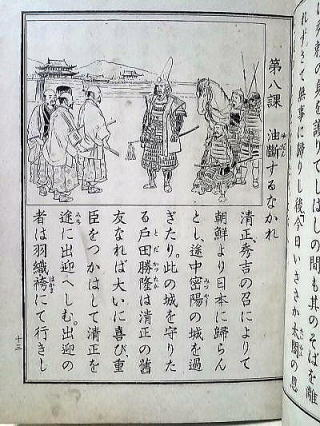 れずさて無事に歸りし後、今日いさゝか太閤の恩
第八課　油斷するなかれ
ゆだん
清正、秀吉の召によりて
朝鮮より日本に歸らん
とし、途中密陽の城を過
みつやう
ぎたり。此の城を守りた
る戸田勝隆は清正の舊
とだかつたか
友なれば大いに喜び、重
臣をつかはして清正を
途に出迎へしむ。出迎の
みち
者は羽織袴にて行きし
はかま
十三